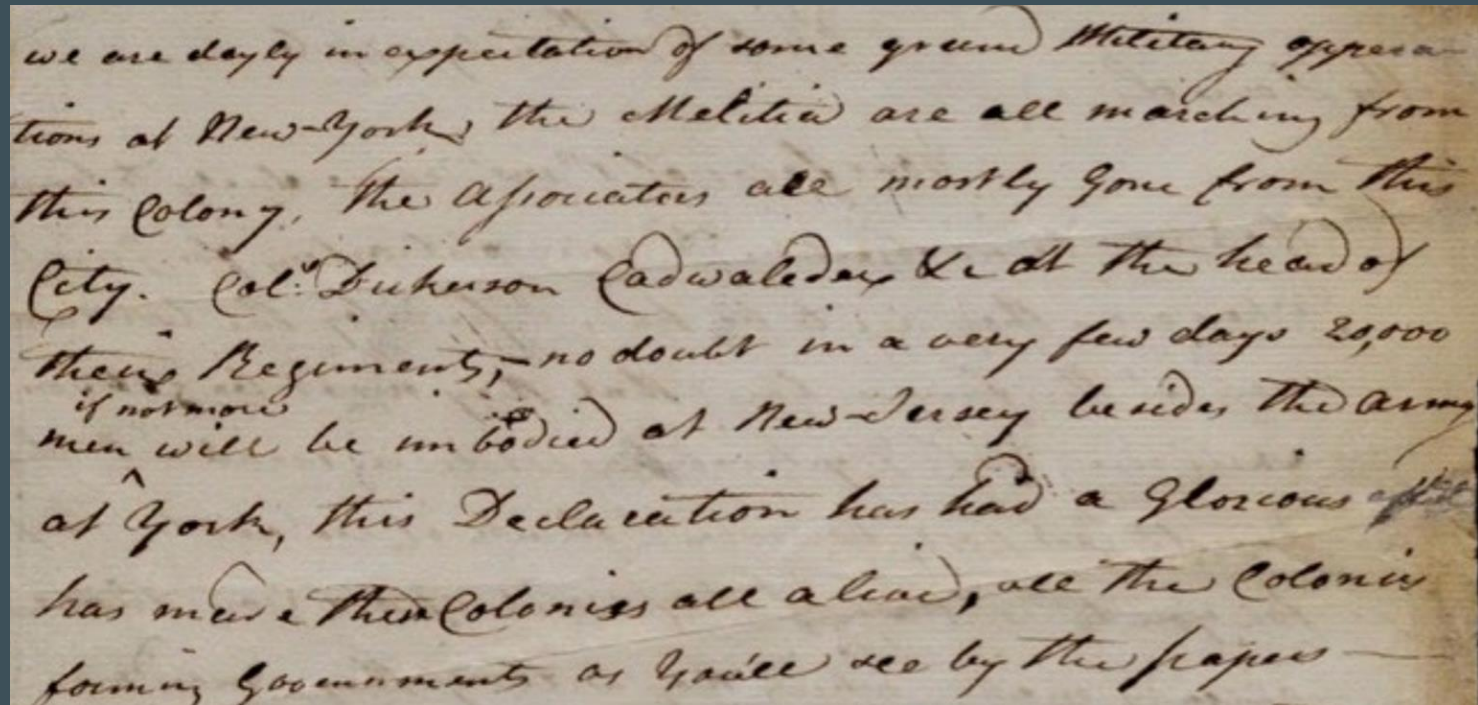 we are dayly in expectation of some grand Military oppera
tions at New-York, the Melitia are all marching from
this Colony, the Associators all mostly gone from this
City. Col.s Dickerson Cadwaleder &c at the head of
their Regiments, – no doubt in a very few days 20,000
if not more
men will be imbodied at New-Jersey besides the army
at York, this Declaration has had a Glorious effect
has made these Colonies all alive, all the Colonies
forming Governments as you'll see by the papers —